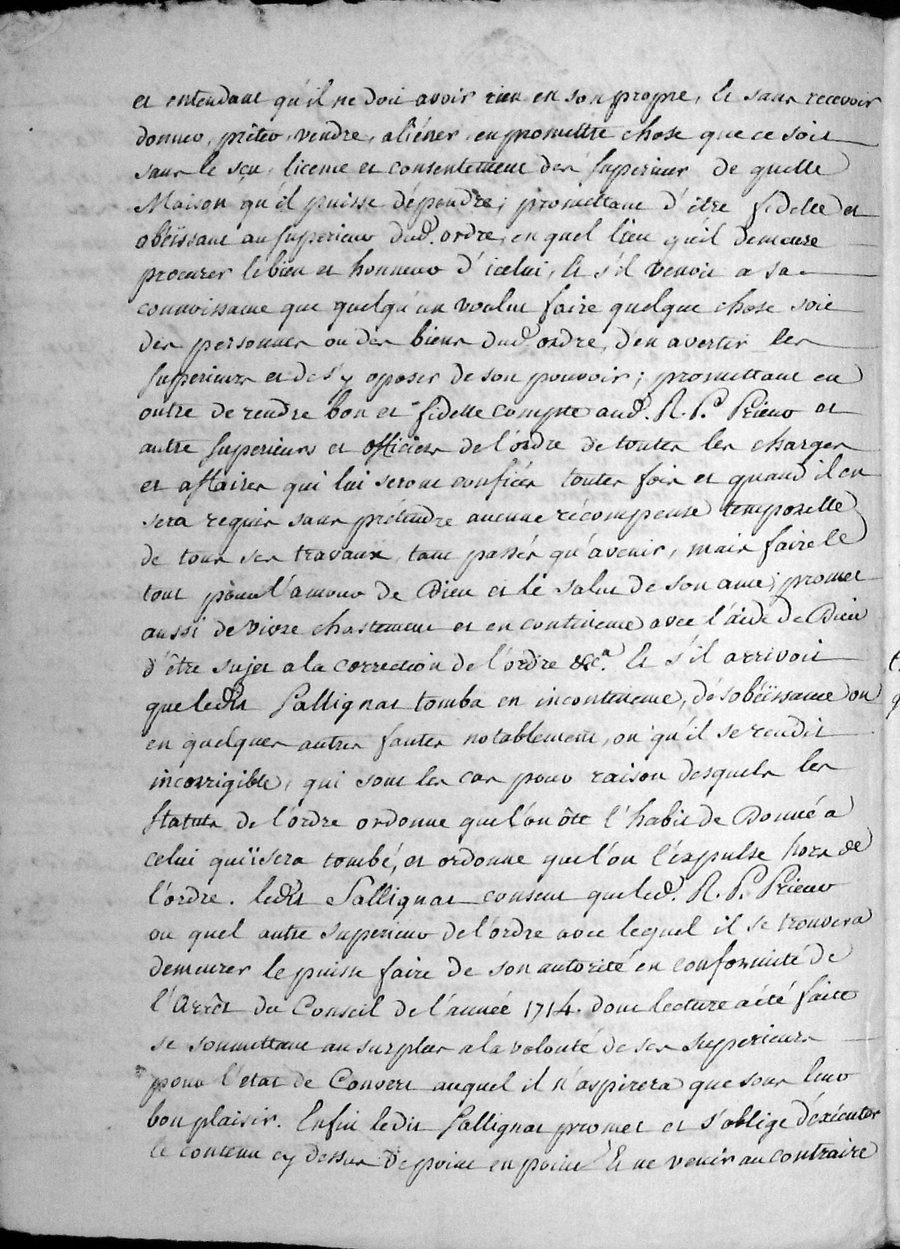 et entendant qu'il ne doit avoir rien en son propre, et sans recevoir
donner, prêter, vendre, aliéner, en promettre chose que ce soit
sans le sçu, licence et consentement des superieurs de quelle
Maison qu'il puisse dépendre; promettant d'être fidelle et
obeïssant au superieur dud. ordre, en quel lieu qu'il demeure
procurer le bien et honneur d'icelui, et s'il venoit a sa
connoissance que quelqu'un voulut faire quelque chose soit
des personnes ou des biens dud. ordre, d'en avertir les
superieurs et de s'y oposer de son pouvoir; promettant en
outre de rendre bon et fidelle compte aud. R. P. Prieur et
autre superieurs et officiers de l'ordre de toutes les charges
et affaires qui lui seront confiées toutes fois et quand il en
sera requis sans prétendre aucune récompense temporelle
de tous ses travaux, tant passés qu'avenir, mais faire le
tout pour l'amour de Dieu et le salut de son ame; promet
aussi de vivre chastement et en continence avec l'aide de Dieu
d'être sujet a la correction de l'ordre &c.a Et s'il arrivoit
que ledit Sallignat tomba en incontinence, désobéïssance ou
en quelques autres fautes notablement, ou qu'il se rendit
incorrigible, qui sont les cas pour raison desquels les
statuts de l'ordre ordonne que l'on ôte l'habit de Donné a
celui qui y sera tombé, et ordonne que l'on l'expulse hors de
l'ordre. ledit Sallignat consent que led. R. P. Prieur
ou quel autre superieur de l'ordre avec lequel il se trouvera
demeurer le puisse faire de son autorité en conformité de
l'Arrêt du Conseil de l'année 1714. dont lecture a été faite
se soumettant au surplus a la volonté de ses superieurs
pour l'etat de Convers auquel il n'aspirera que sous leur
bon plaisir. Enfin ledit Sallignat promet et s'oblige d'éxécuter
le contenu cy dessus de point en point et ne venir au contraire